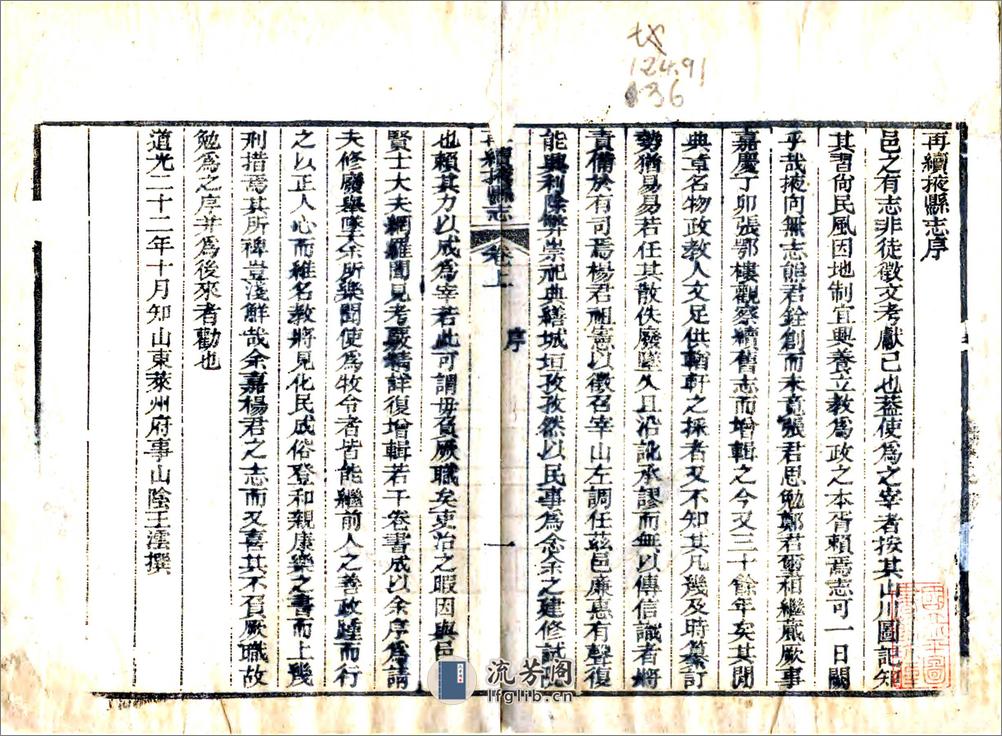 七
124.91
136
再續掖縣志序
邑之有志非徒徵文考獻已也蓋使為之宰者按其山川圖記知
其習尚民風因地制宜興養立教為政之本胥賴焉志可一日闕
乎哉掖向無志館君銓創而未竟張君思勉鄭君 相繼蕆厥事
嘉慶丁卯張鄂樓觀察續舊志而增輯之今又三十餘年矣其間
典章名物政教人文足供輶軒之採者又不知其凡幾及時纂訂
勢猶易易若任其散佚廢墜久且沿訛承謬而無以傳信識者將
責備於有司焉楊君祖憲以徵召宰山左調任茲邑廉惠有聲復
能興利除弊崇祀典繕城垣孜孜然以民事為念余之建修試院
再續掖縣志
卷上
序
一
也賴其力以成為宰若此可謂毋負厥職矣吏治之暇因與邑
賢士大夫網羅聞見考覈精詳復增輯若干卷書成以余序為請
夫修廢舉墜余所樂聞使為牧令者皆能繼前人之善政踵而行
之以正人心而維名教將見化民成俗登和親康樂之書而上幾
刑措焉其所裨豈淺鮮哉余嘉楊君之志而又喜其不負厥職故
勉為之序并為後來者勸也
道光二十二年十月知山東萊州府事山陰王 撰
流芳阁
lfglib.cn